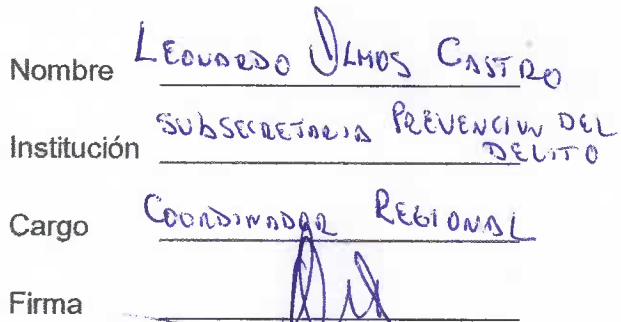 Nombre LEONARDO OLMOS CASTRO
Institución SUBSECRETARIA PREVENCION DEL
DELITO
Cargo COORDINADOR REGIONAL
Firma